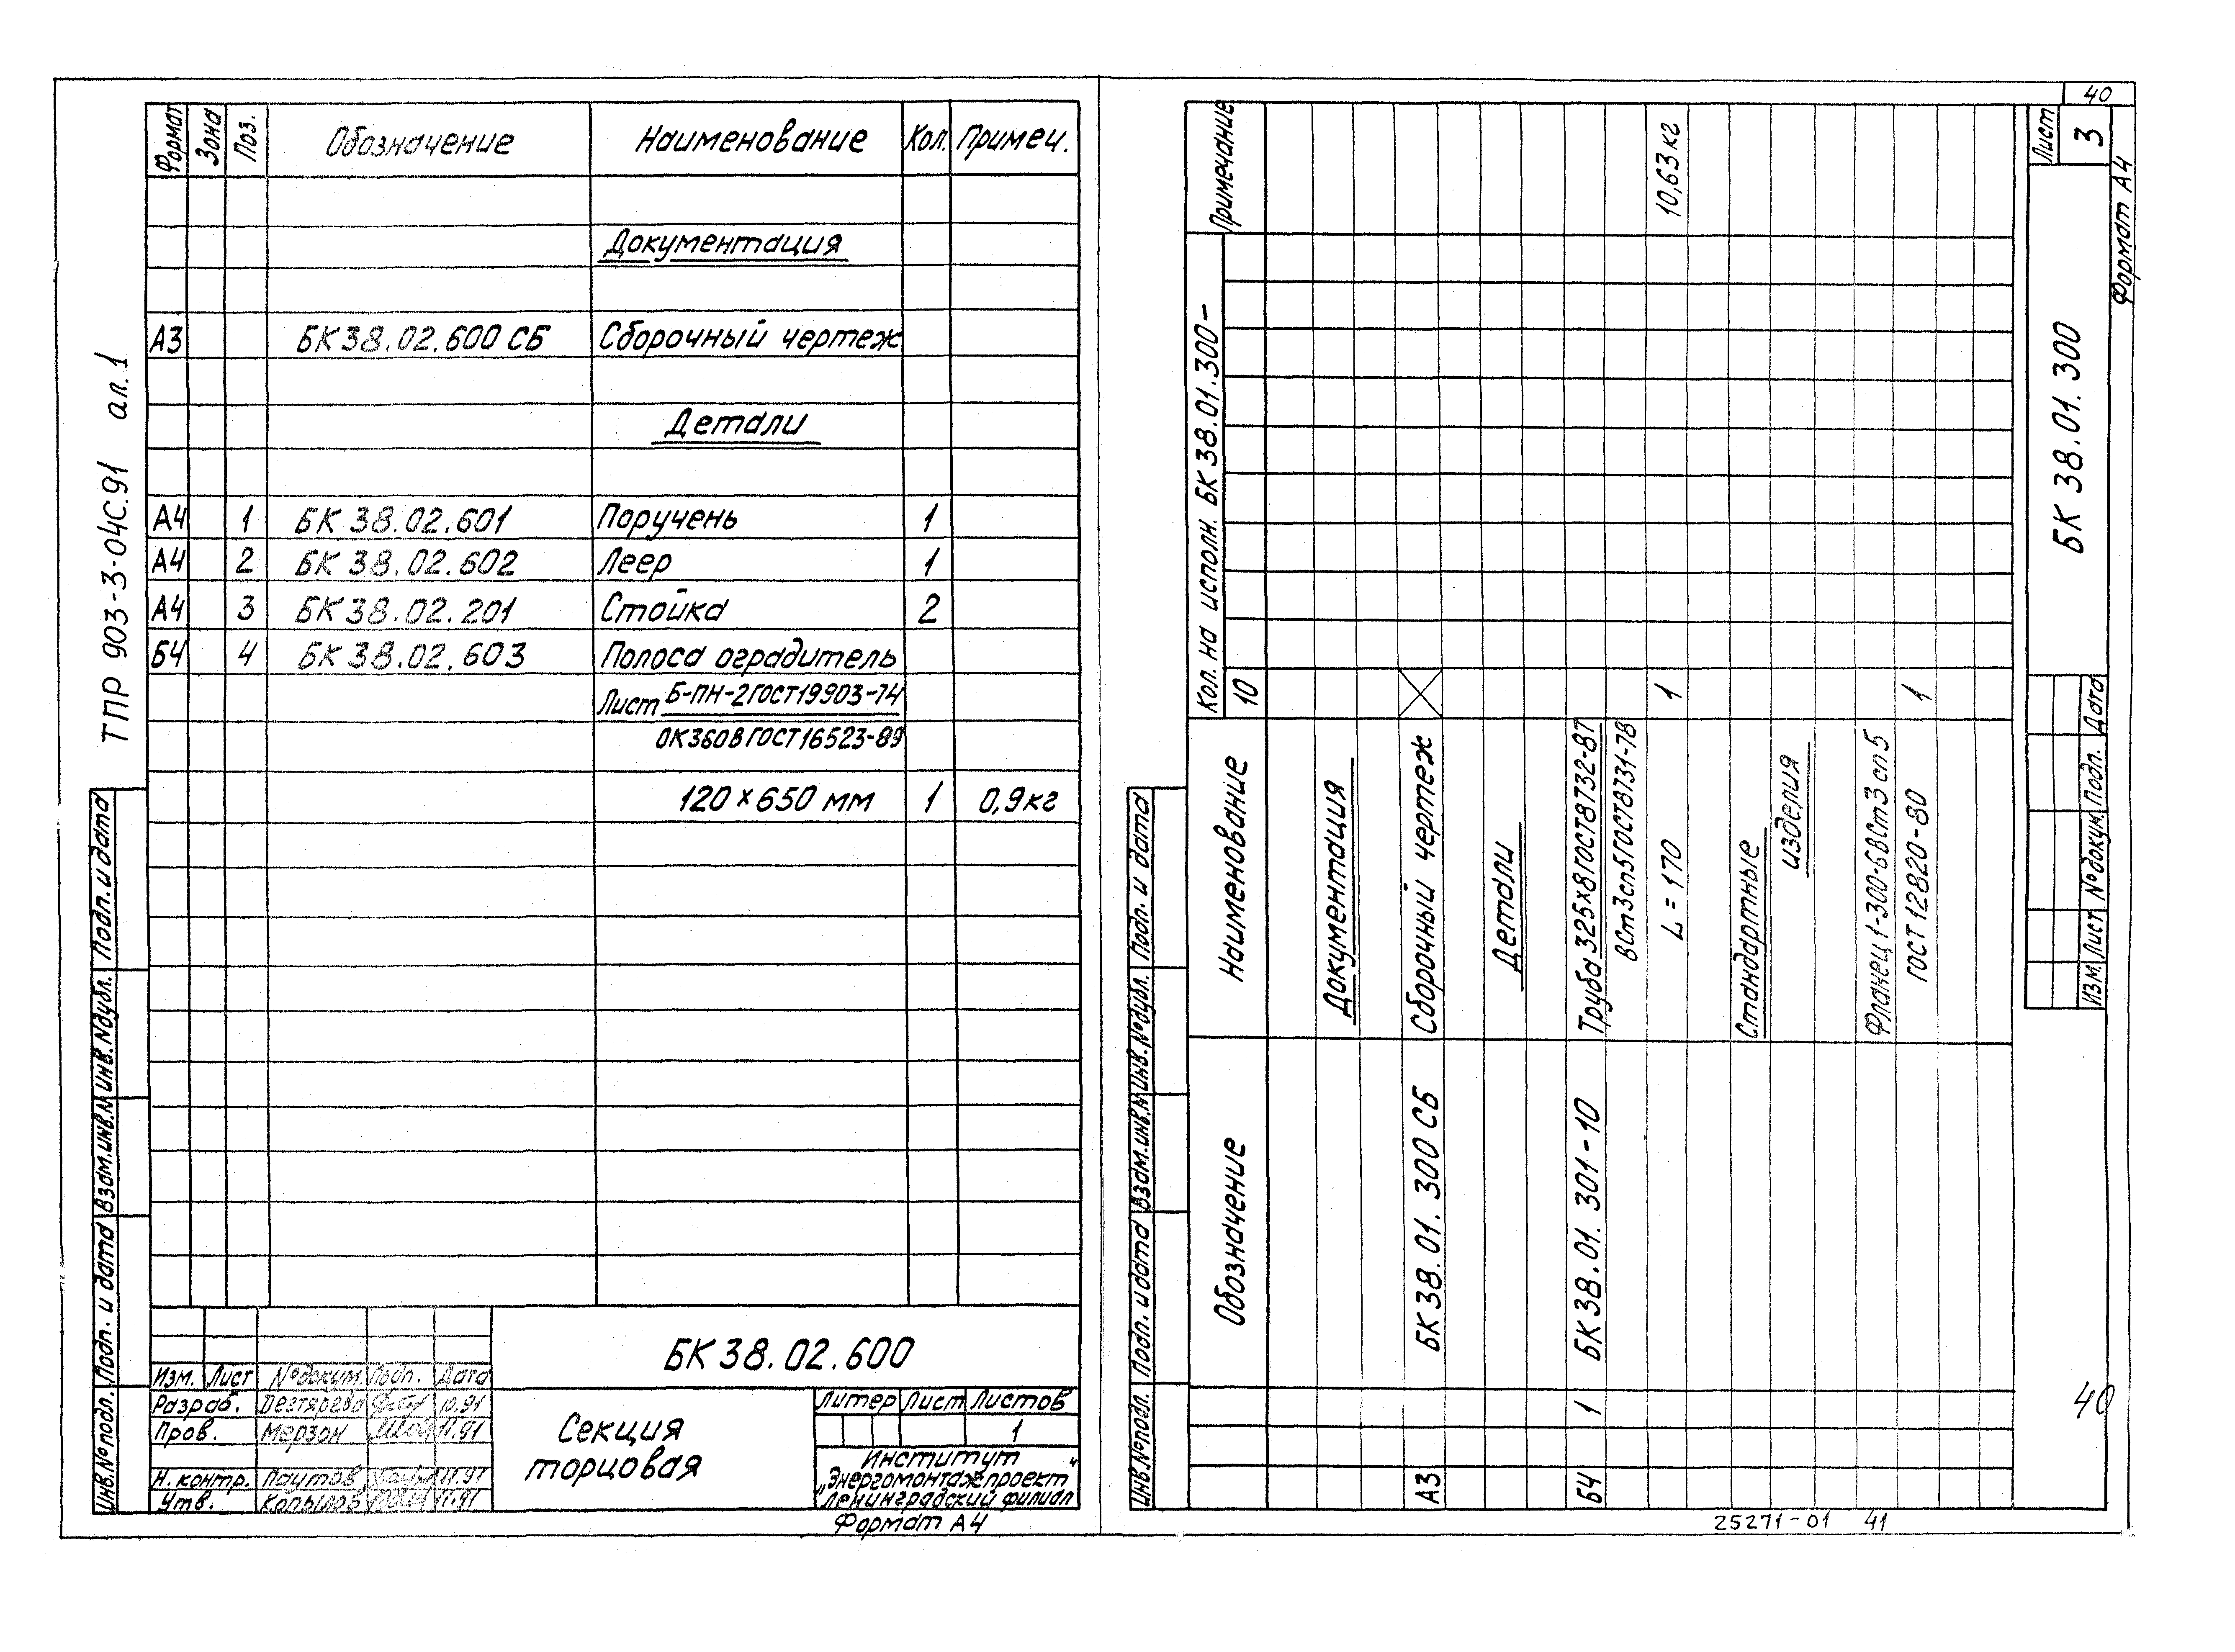 40
ТПР 903-3-04С.91 ал.1
Формат Зона Поз. Обозначение Наименование Кол. Примеч.
Документация
А3 БК38.02.600 СБ Сборочный чертеж
Детали
А4 1 БК 38.02.601 Поручень 1
А4 2 БК 38.02.602 Леер 1
А4 3 БК 38.02.201 Стойка 2
Б4 4 БК 38.02.603 Полоса оградитель
Лист Б-ПН-2ГОСТ19903-74
ОК360В ГОСТ16523-89
120×650 мм 1 0,9кг
Инв.№подл. Подп. и дата Взам.инв.№ Инв.№дубл. Подп. и дата
БК38.02.600
Изм. Лист №докум. Подп. Дата
Разраб. Дегтярева 10.91
Пров. Мерзон 11.91
Н.контр. Паутов 11.91
Утв. Копылов 11.91
Секция
торцовая
Литер Лист Листов
1
Институт
„Энергомонтажпроект“
Ленинградский филиал
Формат А4
Обозначение Наименование Кол. на исполн. БК38.01.300– Примечание
10
Документация
А3 БК38.01.300 СБ Сборочный чертеж
Детали
Б4 1 БК38.01.301-10 Труба 325х8ГОСТ8732-87
ВСт3сп5ГОСТ8731-78
L = 170 1 10,63кг
Стандартные
изделия
Фланец 1-300-6ВСт3сп5
ГОСТ12820-80 1
Инв.№подл. Подп. и дата Взам.инв.№ Инв.№дубл. Подп. и дата
Изм. Лист №докум. Подп. Дата
БК 38.01.300
Лист
3
Формат А4
40
25271-01 41